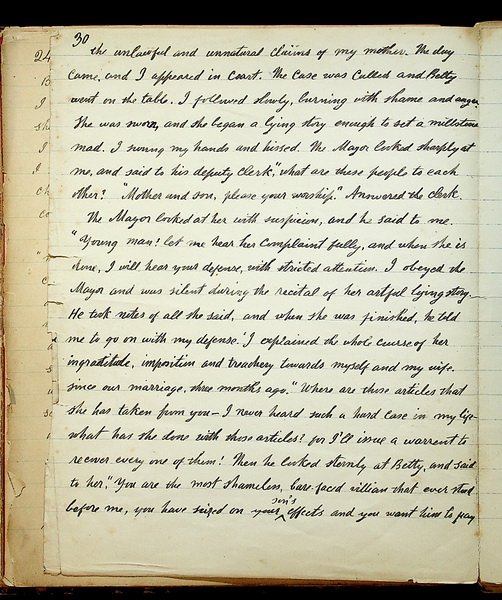 30
the unlawful and unnatural claims of my mother. The day
came, and I appeared in Court. The case was called and Betty
went on the table. I followed slowly, burning with shame and anger
She was sworn, and she began a lying story enough to set a millstone
mad. I swung my hands and hissed. The Mayor looked sharply at
me, and said to his deputy clerk, "what are these people to each
other? "Mother and son, please your worship." Answered the clerk.
The Mayor looked at her with suspicion, and he said to me.
"Young man! let me hear her complaint fully, and when she is
done, I will hear your defense, with strictest attention. I obeyed the
Mayor and was silent during the recital of her artful lying story.
He took notes of all she said, and when she was finished, he told
me to go on with my defense. I explained the whole course of her
ingratitude, imposition and treachery towards myself and my wife.
since our marriage, three months ago." Where are those articles that
she has taken from you – I never heard such a hard case in my life–
what has she done with those articles? for I'll issue a warrent to
recover every one of them! Then he looked sternly at Betty, and said
to her, "You are the most shameless, bare faced villian that ever stood
before me, you have seized on your son's effects and you want him to pay
24
I
sh
I
I
ch
co